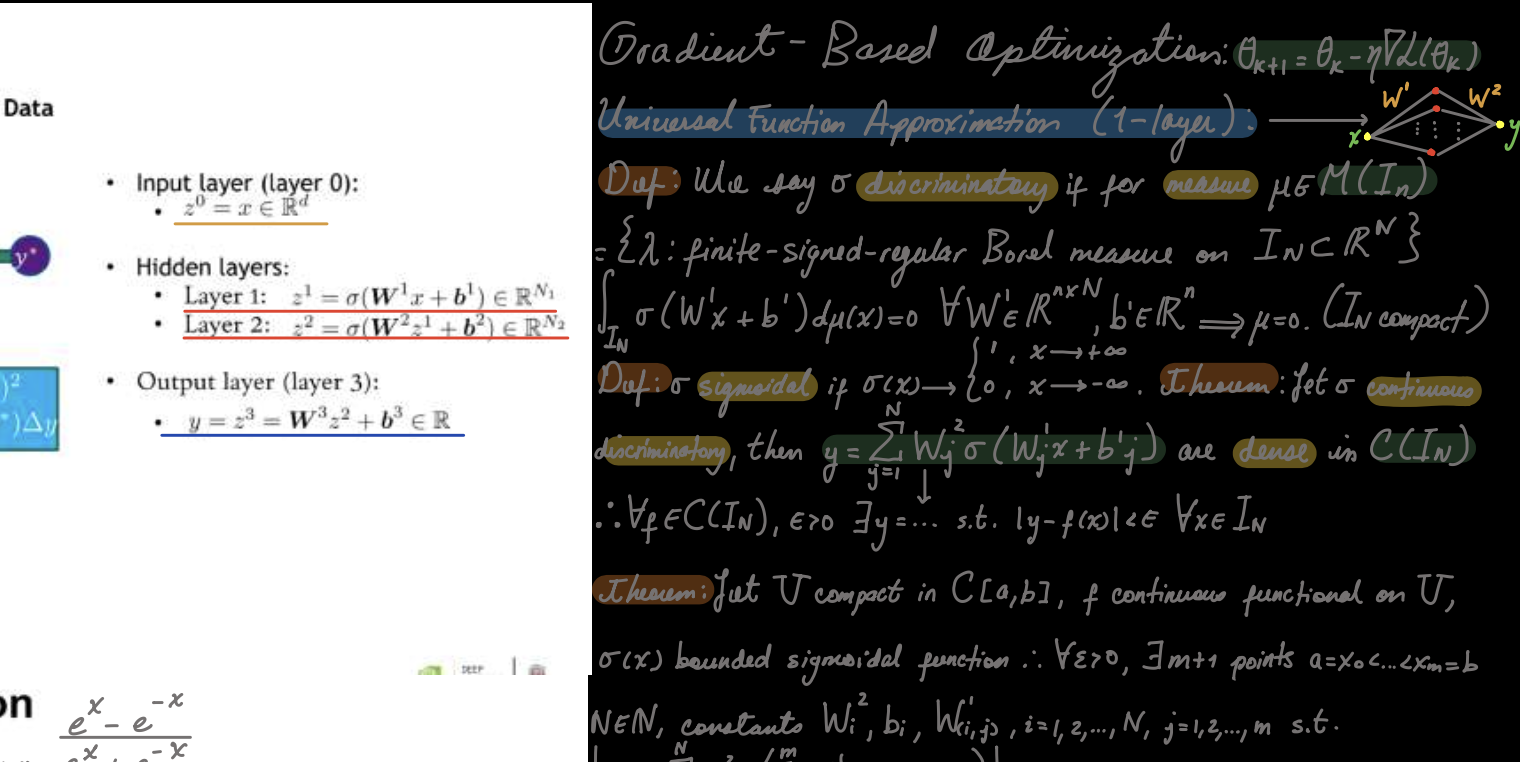 Data
• Input layer (layer 0):
• z⁰ = x ∈ ℝᵈ
y*
• Hidden layers:
• Layer 1: z¹ = σ(W¹x + b¹) ∈ ℝ^{N₁}
• Layer 2: z² = σ(W²z¹ + b²) ∈ ℝ^{N₂}
)²
*)Δy
• Output layer (layer 3):
• y = z³ = W³z² + b³ ∈ ℝ
on
e^x - e^{-x}
Gradient-Based Optimization: θ_{k+1} = θ_k - η∇L(θ_k)
Universal Function Approximation (1-layer): →
W¹ W²
x y
Def: We say σ discriminatory if for measure μ∈M(I_n)
= {λ: finite-signed-regular Borel measure on I_N⊂ℝ^N}
∫_{I_N} σ(W¹x+b¹)dμ(x)=0 ∀W¹∈ℝ^{n×N}, b¹∈ℝ^n ⟹ μ=0. (I_N compact)
Def: σ sigmoidal if σ(x)→{1, x→+∞ 0, x→-∞. Theorem: Let σ continuous
discriminatory, then y=∑_{j=1}^{N} W_j²σ(W_j¹x+b¹_j) are dense in C(I_N)
∴∀f∈C(I_N), ε>0 ∃y=... s.t. |y-f(x)|<ε ∀x∈I_N
Theorem: Let U compact in C[a,b], f continuous functional on U,
σ(x) bounded sigmoidal function ∴ ∀ε>0, ∃m+1 points a=x₀<...<x_m=b
N∈ℕ, constants W_i², b_i, W¹_{(i,j)}, i=1,2,...,N, j=1,2,...,m s.t.